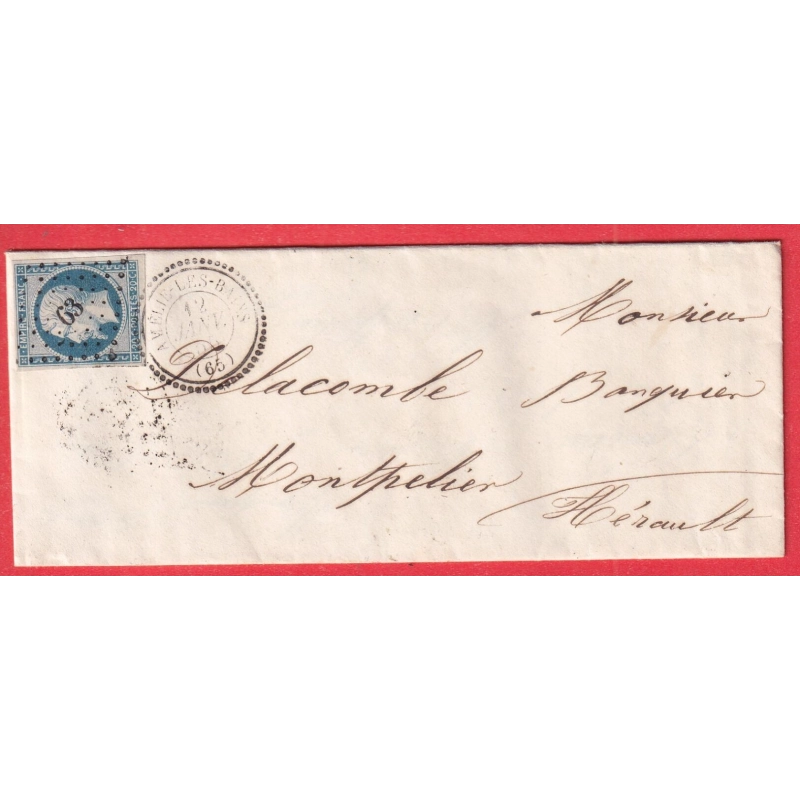 EMPIRE FRANC
20c POSTES 20c
63
AMÉLIE-LES-BAINS
12
JANV.
(65)
Monsieur
Delacombe Banquier
Montpelier Hérault